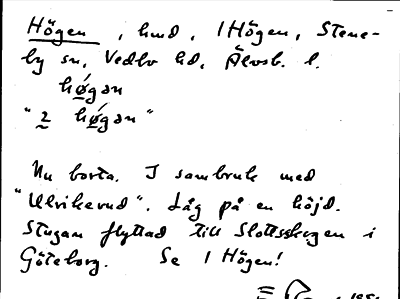 Högen, hmd, 1 Högen, Stene-
by sn, Vedbo hd, Älvsb. l.
høgan
"2 høgan"
Nu borta. I sambruk med
"Ulrikerud". Låg på en höjd.
Stugan flyttad till Slottsskogen i
Göteborg. Se 1 Högen!